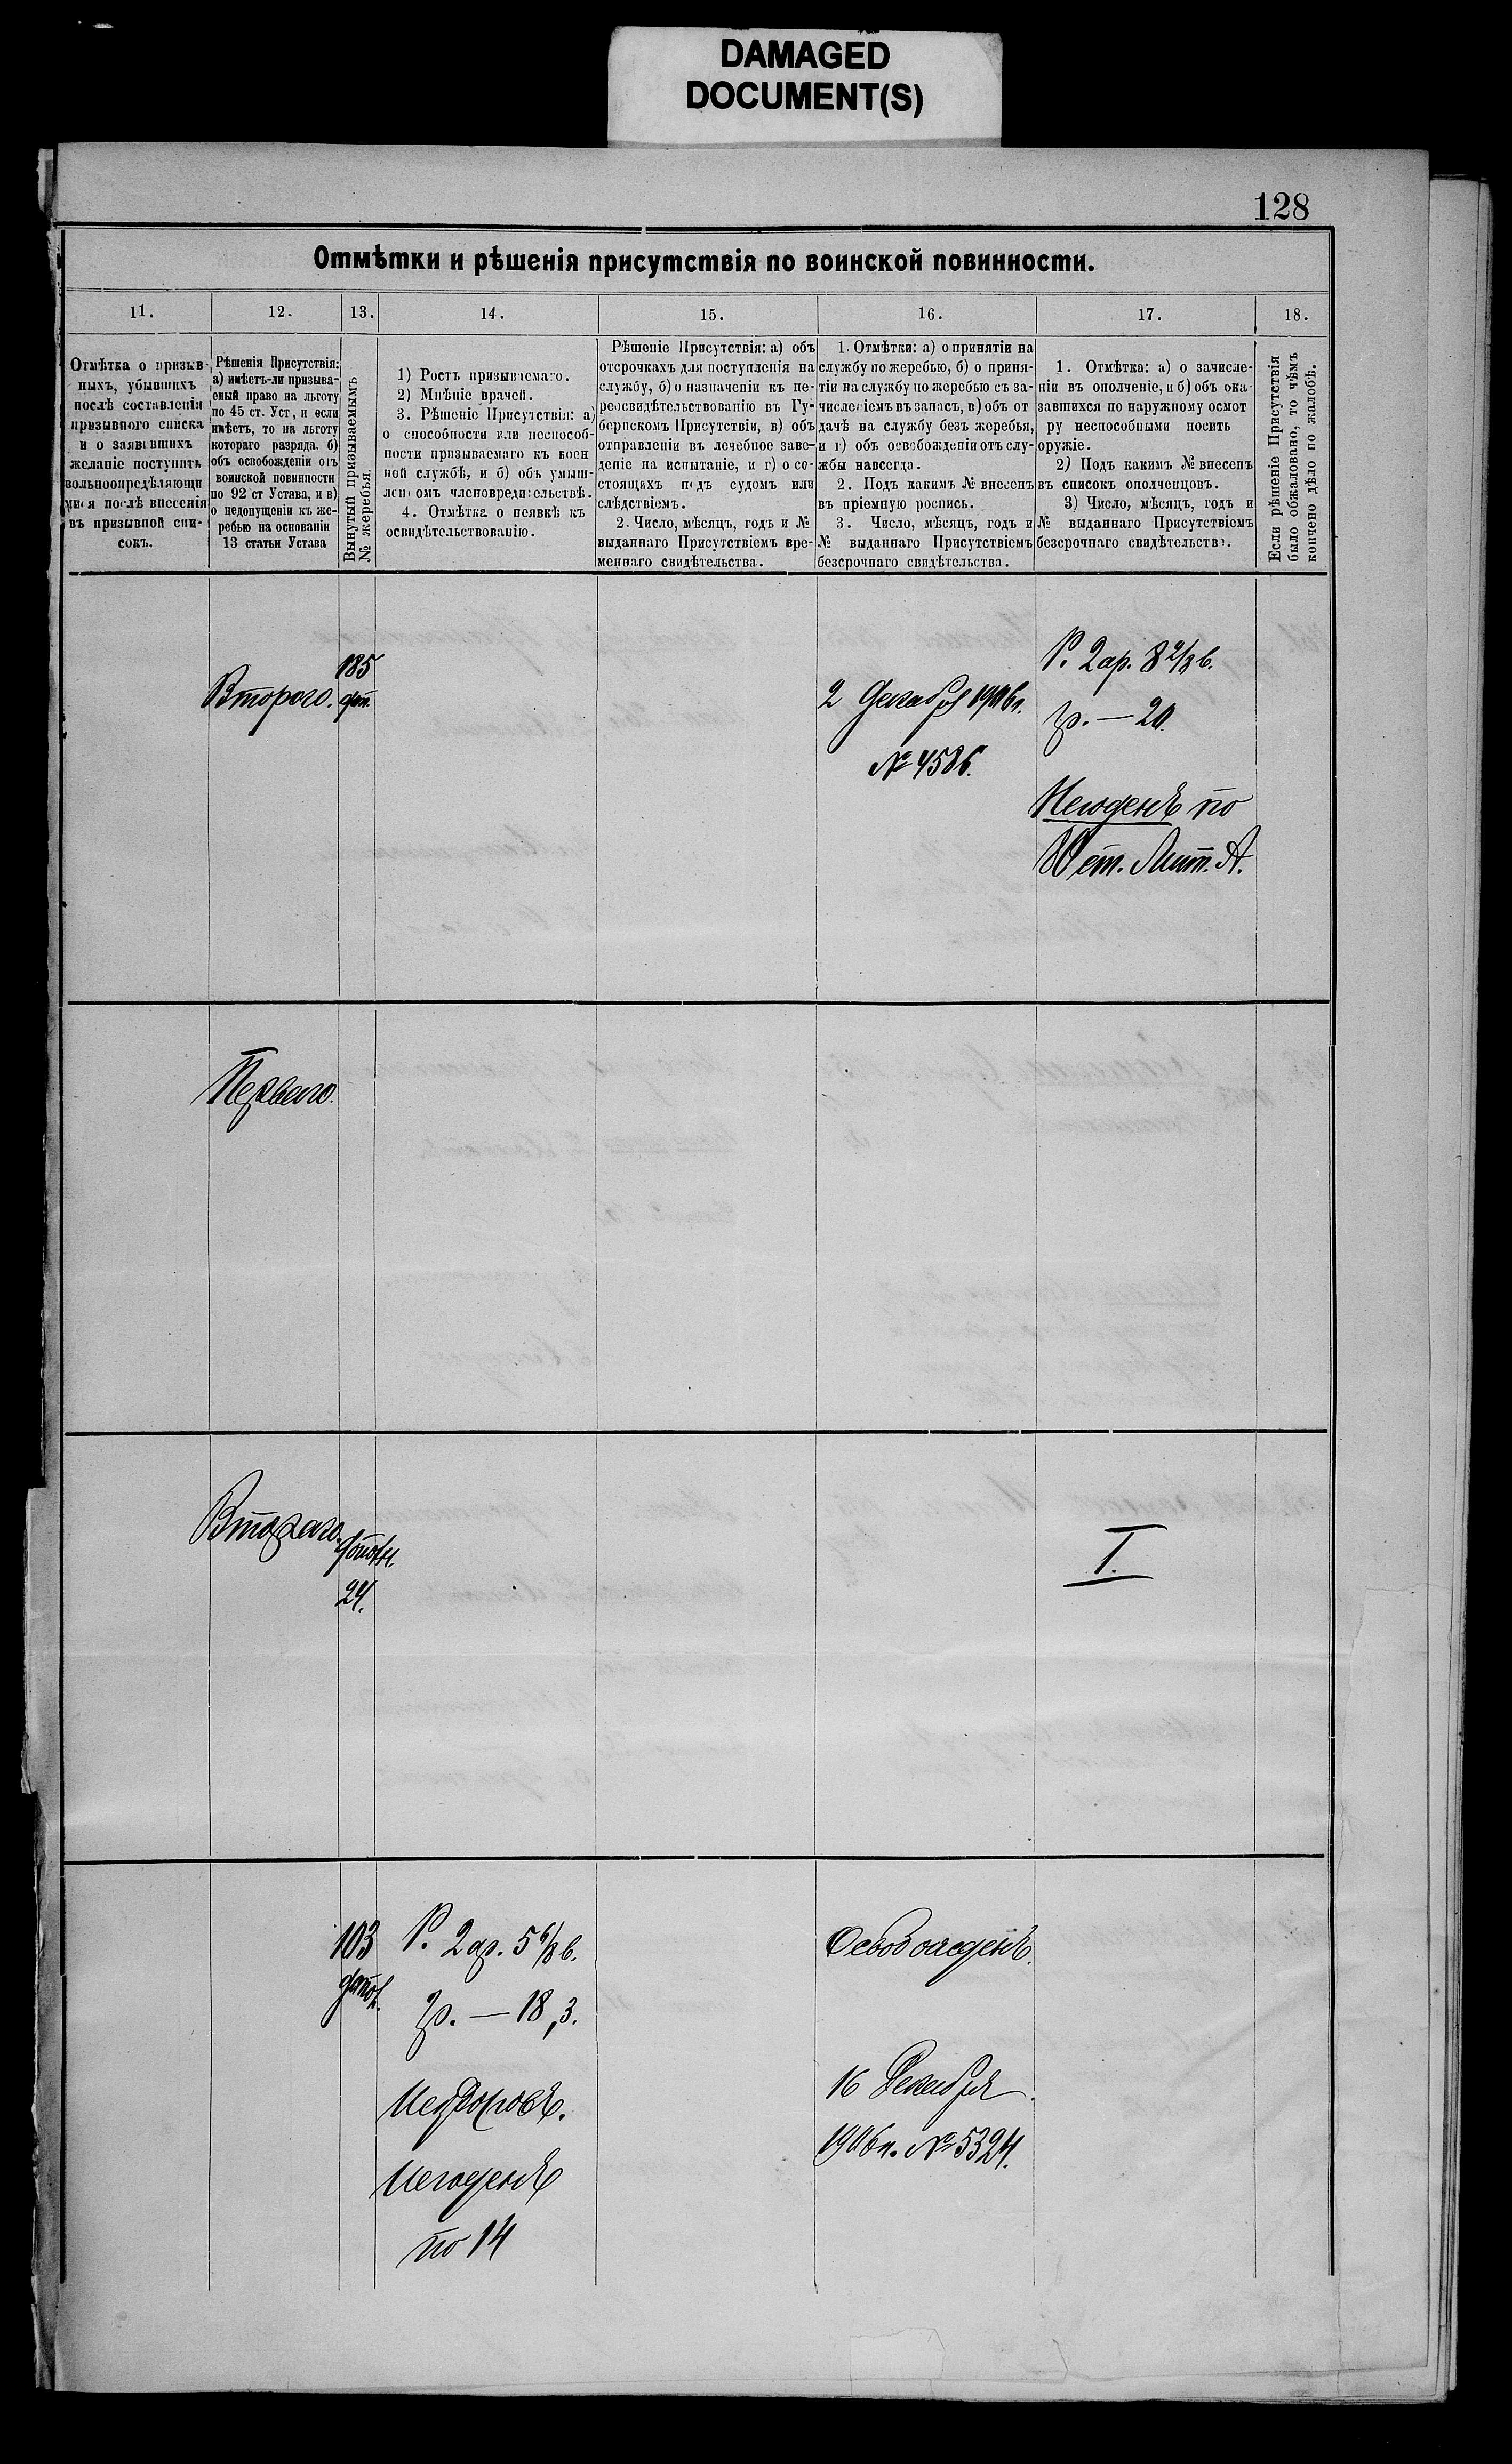 DAMAGED
DOCUMENT(S)
128
Отмѣтки и рѣшенія присутствія по воинской повинности.
11. 12. 13. 14. 15. 16. 17. 18.
Отмѣтка о призыв-
ныхъ, убывшихъ
послѣ составленія
призывного списка
и о заявившихъ
желаніе поступить
вольноопредѣляющи
мися послѣ внесенія
въ призывной спи-
сокъ.
Рѣшенія Присутствія:
а) имѣетъ-ли призыва-
емый право на льготу
по 45 ст. Уст, и если
имѣетъ, то на льготу
котораго разряда. б)
объ освобожденіи отъ
воинской повинности
по 92 ст Устава, и в)
о недопущеніи къ же-
ребью на основаніи
13 статьи Устава
Вынутый призываемымъ
№ жеребья.
1) Ростъ призываемаго.
2) Мнѣніе врачей.
3. Рѣшеніе Присутствія: а)
о способности или неспособ-
ности призываемаго къ воен
ной службѣ, и б) объ умыш-
леномъ членовредительствѣ.
4. Отмѣтка о неявкѣ къ
освидѣтельствованію.
Рѣшеніе Присутствія: а) объ
отсрочкахъ для поступленія на
службу, б) о назначеніи къ пе-
реосвидѣтельствованію въ Гу-
бернскомъ Присутствіи, в) объ
отправленіи въ лечебное заве-
деніе на испытаніе, и г) о со-
стоящихъ подъ судомъ или
слѣдствіемъ.
2. Число, мѣсяцъ, годъ и №
выданнаго Присутствіемъ вре-
меннаго свидѣтельства.
1. Отмѣтки: а) о принятіи на
службу по жеребью, б) о приня-
тіи на службу по жеребью съ за-
численіемъ въ запасъ, в) объ от
дачѣ на службу безъ жеребья,
и г) объ освобожденіи отъ слу-
жбы навсегда.
2. Подъ какимъ № внесенъ
въ пріемную роспись.
3. Число, мѣсяцъ, годъ и
№ выданнаго Присутствіемъ
безсрочнаго свидѣтельства.
1. Отмѣтка: а) о зачисле-
ніи въ ополченіе, и б) объ ока-
завшихся по наружному осмот
ру неспособными носить
оружіе.
2) Подъ какимъ № внесенъ
въ списокъ ополченцовъ.
3) Число, мѣсяцъ, годъ и
№ выданнаго Присутствіемъ
безсрочнаго свидѣтельства.
Если рѣшеніе Присутствія
было обжаловано, то чѣмъ
кончено дѣло по жалобѣ.
Второго.
185
2 Декабря 1906 г.
№ 4586.
Р. 2 ар. 8 2/8 в.
гр. — 20.
Негоденъ по
80 ст. Лит. А.
Перваго.
Втораго.
24.
I.
103
Р. 2 ар. 5 6/8 в.
гр. — 18,3.
Нездоровъ.
Негоденъ
по 14
Освобожденъ.
16 Декабря
1906 г. № 5324.